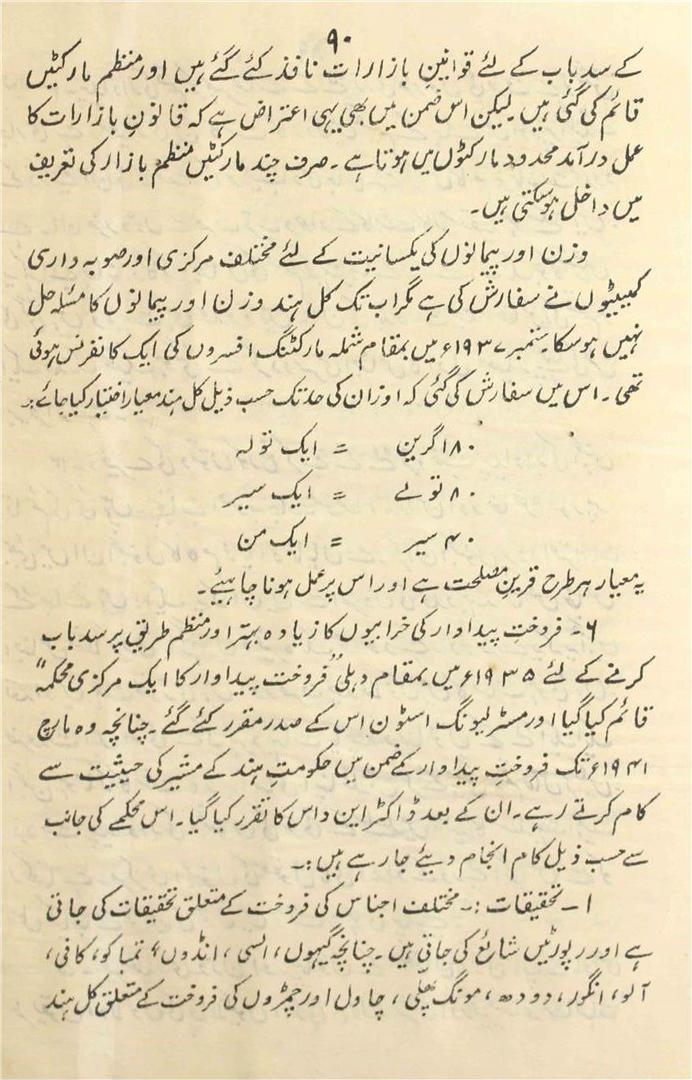 ۹۰
کے سدباب کے لئے قوانینِ بازارات نافذ کئے گئے ہیں اور منظم مارکٹیں
قائم کی گئی ہیں۔ لیکن اس ضمن میں بھی یہی اعتراض ہے کہ قانونِ بازارات کا
عمل درآمد محدود مارکٹوں میں ہوتا ہے۔ صرف چند مارکٹیں منظمۂ بازار کی تعریف
میں داخل ہوسکتی ہیں۔
وزن اور پیمانوں کی یکسانیت کے لئے مختلف مرکزی اور صوبہ داری
کمیٹیوں نے سفارش کی ہے مگر اب تک کل ہند وزن اور پیمانوں کا مسئلہ حل
نہیں ہوسکا۔ ستمبر ۱۹۳۷ء میں بمقام شملہ مارکٹنگ افسروں کی ایک کانفرنس ہوئی
تھی۔ اس میں سفارش کی گئی کہ اوزان کی حد تک حسب ذیل کل ہند معیار اختیار کیا جائے:۔
۱۸۰ گرین = ایک تولہ
۸۰ تولے = ایک سیر
۴۰ سیر = ایک من
یہ معیار ہر طرح قرینِ مصلحت ہے اور اس پر عمل ہونا چاہیئے۔
۶۔ فروخت پیداوار کی خرابیوں کا زیادہ بہتر اور منظم طریق پر سدباب
کرنے کے لئے ۱۹۳۵ء میں بمقام دہلی "فروخت پیداوار کا ایک مرکزی محکمہ"
قائم کیا گیا اور مسٹر لیونگ اسٹون اس کے صدر مقرر کئے گئے۔ چنانچہ وہ مارچ
۱۹۴۱ء تک فروختِ پیداوار کے ضمن میں حکومتِ ہند کے مشیر کی حیثیت سے
کام کرتے رہے۔ ان کے بعد ڈاکٹر این داس کا تقرر کیا گیا۔ اس محکمے کی جانب
سے حسب ذیل کام انجام دیئے جارہے ہیں:۔
۱۔ تحقیقات:۔ مختلف اجناس کی فروخت کے متعلق تحقیقات کی جاتی
ہے اور رپورٹیں شائع کی جاتی ہیں۔ چنانچہ گیہوں، السی، انڈوں، تمباکو، کافی،
آلو، انگور، دودھ، مونگ پھلی، چاول اور چمڑوں کی فروخت کے متعلق کل ہند